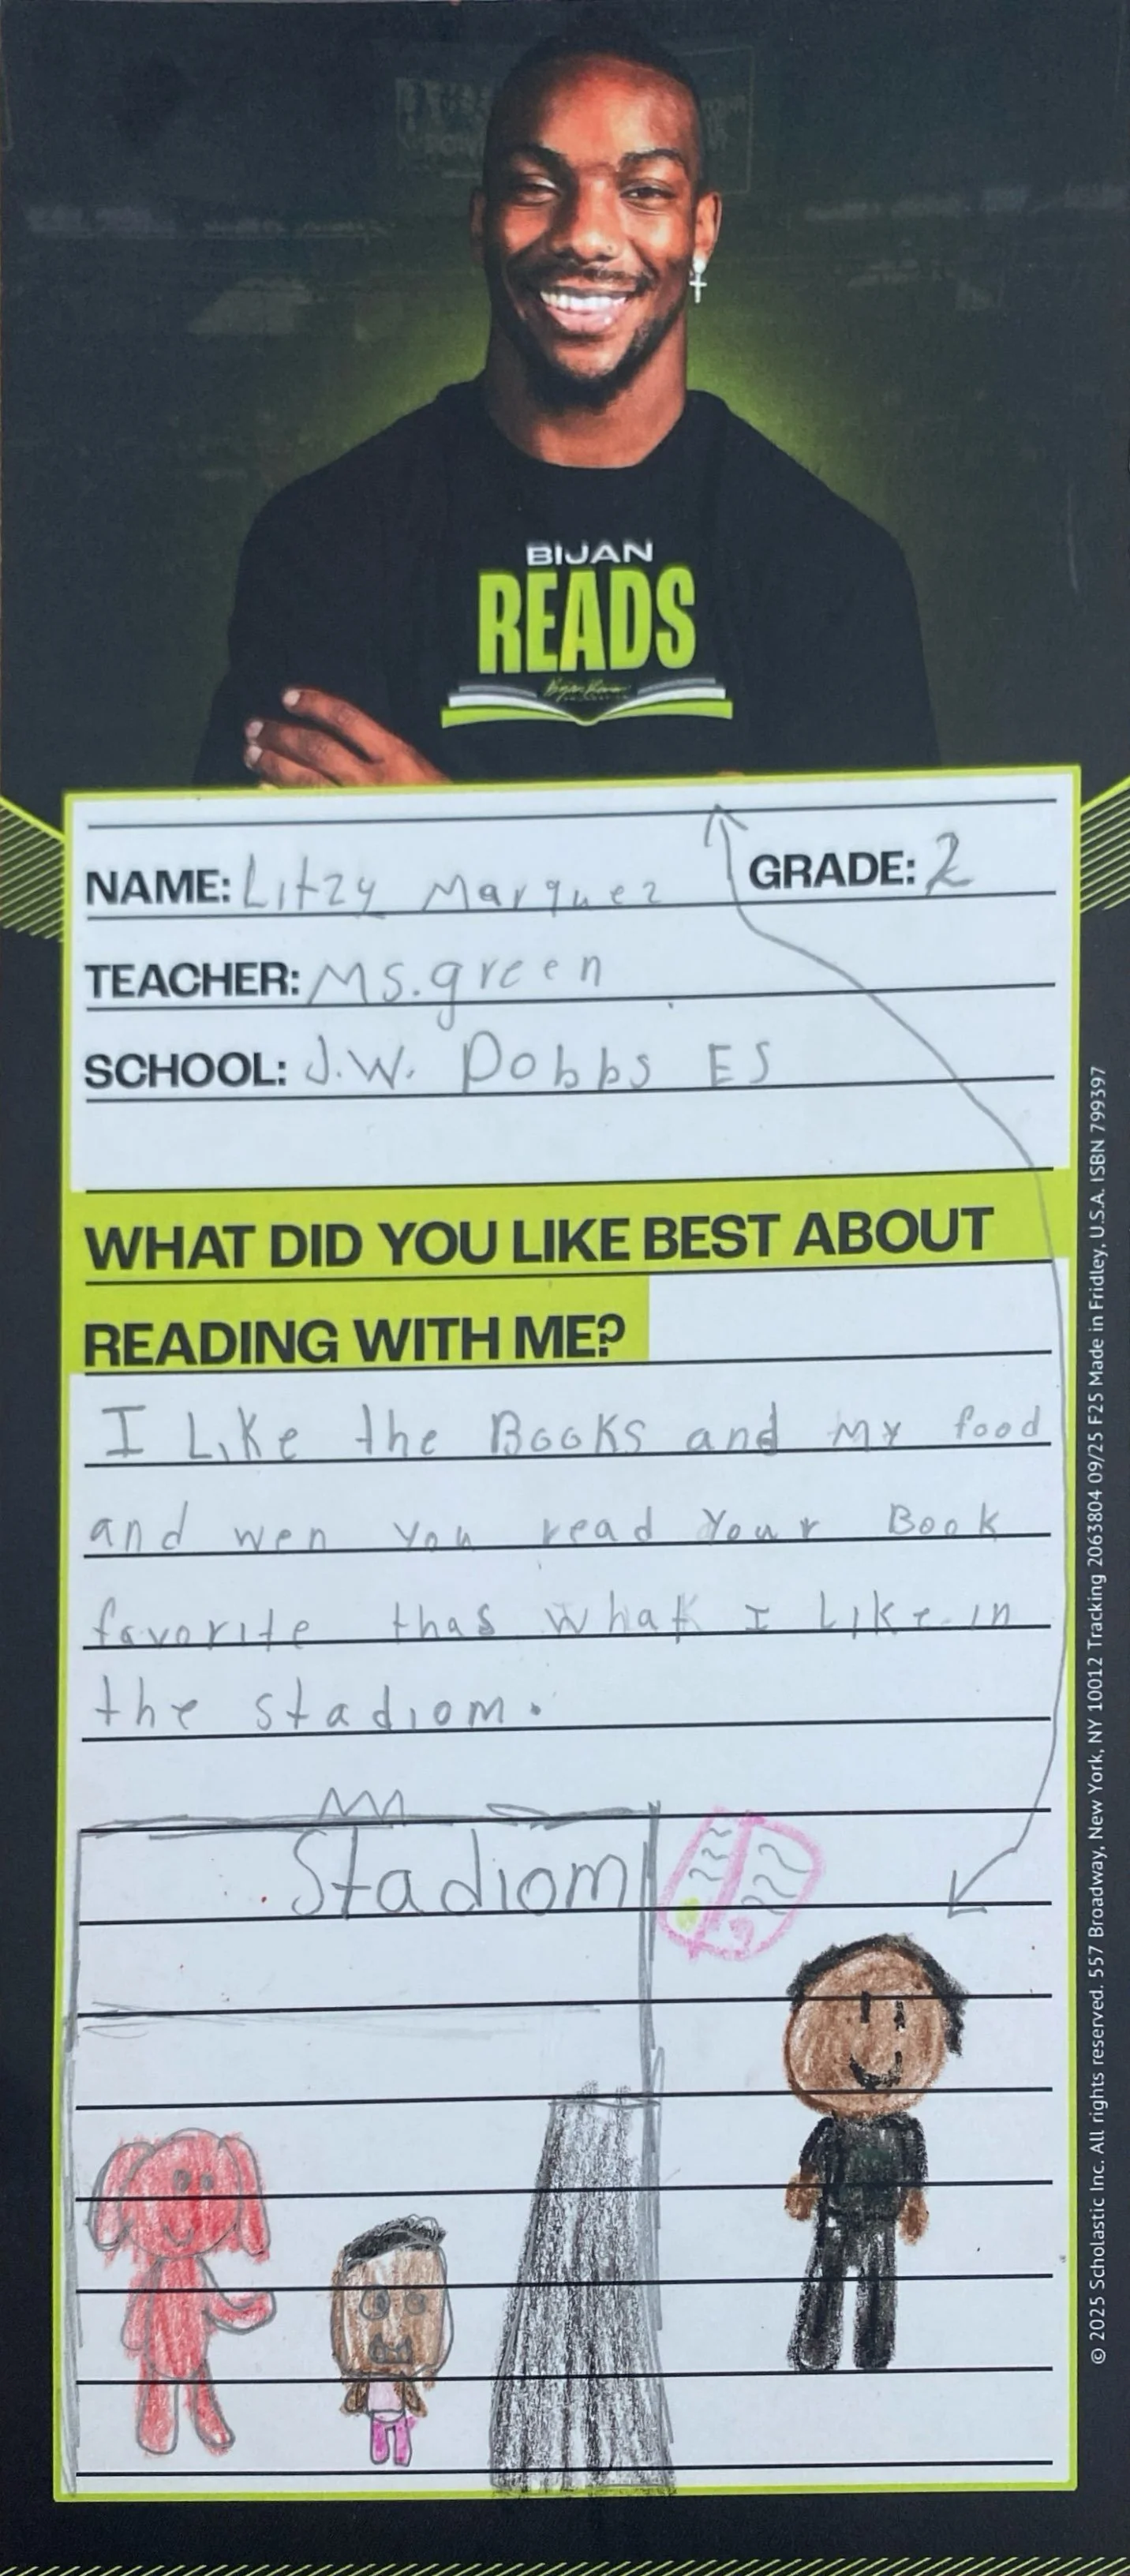 BIJAN
READS
NAME: Litzy Marquez GRADE: 2
TEACHER: Ms. green
SCHOOL: J.W. Dobbs ES
WHAT DID YOU LIKE BEST ABOUT
READING WITH ME?
I Like the Books and my food
and wen you read your Book
favorite thas what I Like in
the stadiom.
Stadiom
© 2025 Scholastic Inc. All rights reserved. 557 Broadway, New York, NY 10012 Tracking 2063804 09/25 F25 Made in Fridley, U.S.A. ISBN 799397